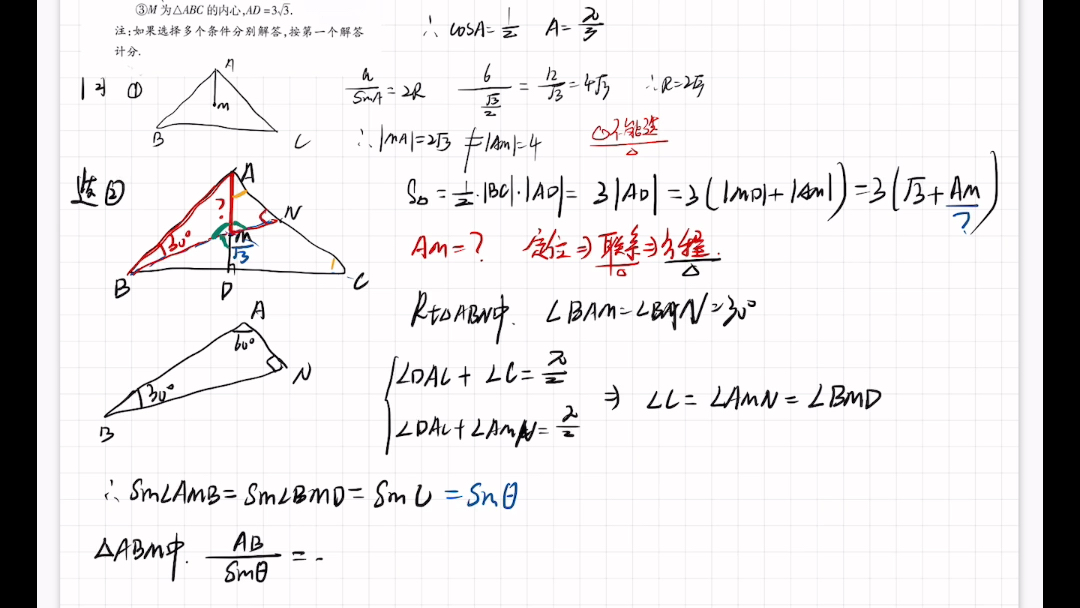 ③M 为△ABC 的内心,AD=3√3.
注:如果选择多个条件分别解答,按第一个解答
计分.
∴ cosA=1/2 A=π/3
①
A
M
B
C
a/sinA=2R 6/(√3/2)=12/√3=4√3 ∴R=2√3
∴|MA|=2√3≠|AM|=4 ①不能选
选②
A
N
?
30°
M
√3
B
D
C
S△=1/2·|BC|·|AD|=3|AD|=3(|MD|+|AM|)=3(√3+AM)
?
AM=? 定位⇒联系⇒方程.
Rt△ABN中. ∠BAM=∠BAN=30°
A
60°
30°
N
B
∠DAC+∠C=π/2
∠DAC+∠AMN=π/2
⇒ ∠C=∠AMN=∠BMD
∴ sin∠AMB=sin∠BMD=sinC=sinθ
△ABM中. AB/sinθ=